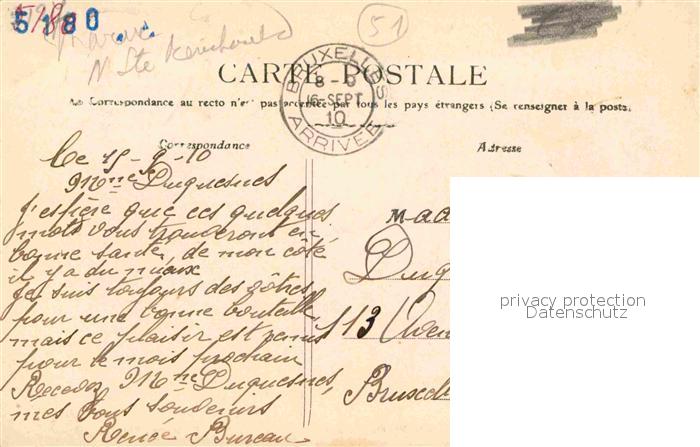 5180
51
CARTE POSTALE
La Correspondance au recto n'est pas acceptée par tous les pays étrangers (Se renseigner à la poste)
BRUXELLES
8-9
16-SEPT
10
ARRIVEE
Correspondance
Adresse
Ce 15-9-10
Mme Duquesnes
J'espère que ces quelques
mots vous trouveront en
bonne santé, de mon côté
il y a du mieux
Je suis toujours des vôtres
pour une bonne bouteille
mais ce plaisir est remis
pour le mois prochain
Recevez Mme Duquesnes,
mes bons souvenirs
Renée Bureau
Mad
Duq
113 Aven
Bruxell
privacy protection
Datenschutz